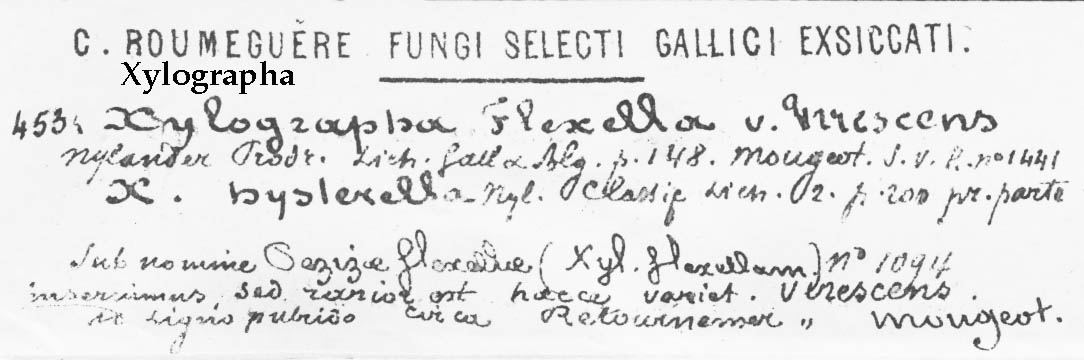 C. ROUMEGUÈRE FUNGI SELECTI GALLICI EXSICCATI.
Xylographa
453. Xylographa Flexella v. Virescens
Nylander Prodr. Lich. Gall & Alg. p. 148. Mougeot. S. V. R. nº 1441
X. hysterella Nyl. Classif Lich. 2. p. 200 pr. parte
Sub nomine Pezizæ flexellæ (Xyl. flexellam.) Nº 1094
inserrimus, sed rarior est hæcce variet. Virescens.
ligno putrido circa Retournemer „ Mougeot.